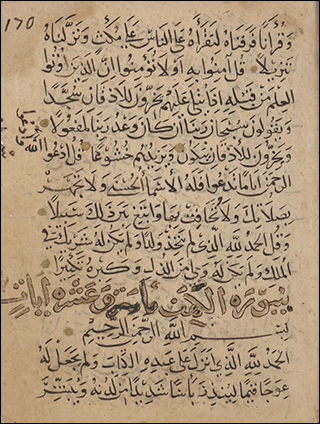 وَقُرْأَنًا فَرَقْنَاهُ لِتَقْرَأَهُ عَلَى النَّاسِ عَلَى مُكْثٍ وَنَزَّلْنَاهُ
تَنْزِيلًا قُلْ آمِنُوا بِهِ أَوْ لَا تُؤْمِنُوا إِنَّ الَّذِينَ أُوتُوا
الْعِلْمَ مِنْ قَبْلِهِ إِذَا يُتْلَى عَلَيْهِمْ يَخِرُّونَ لِلْأَذْقَانِ سُجَّدًا
وَيَقُولُونَ سُبْحَانَ رَبِّنَا إِنْ كَانَ وَعْدُ رَبِّنَا لَمَفْعُولًا
وَيَخِرُّونَ لِلْأَذْقَانِ يَبْكُونَ وَيَزِيدُهُمْ خُشُوعًا قُلِ ادْعُوا
الله أو ادعوا
الرَّحْمَنَ أَيًّا مَا تَدْعُوا فَلَهُ الْأَسْمَاءُ الْحُسْنَى وَلَا تَجْهَرْ
بِصَلَاتِكَ وَلَا تُخَافِتْ بِهَا وَابْتَغِ بَيْنَ ذَلِكَ سَبِيلًا
وَقُلِ الْحَمْدُ لِلَّهِ الَّذِي لَمْ يَتَّخِذْ وَلَدًا وَلَمْ يَكُنْ لَهُ شَرِيكٌ فِي
الْمُلْكِ وَلَمْ يَكُنْ لَهُ وَلِيٌّ مِنَ الذُّلِّ وَكَبِّرْهُ تَكْبِيرًا
سورة الكهف مائة وعشرة آيات
بسم الله الرحمن الرحيم
الْحَمْدُ لِلَّهِ الَّذِي أَنْزَلَ عَلَى عَبْدِهِ الْكِتَابَ وَلَمْ يَجْعَلْ لَهُ
عِوَجًا قَيِّمًا لِيُنْذِرَ بَأْسًا شَدِيدًا مِنْ لَدُنْهُ وَيُبَشِّرَ